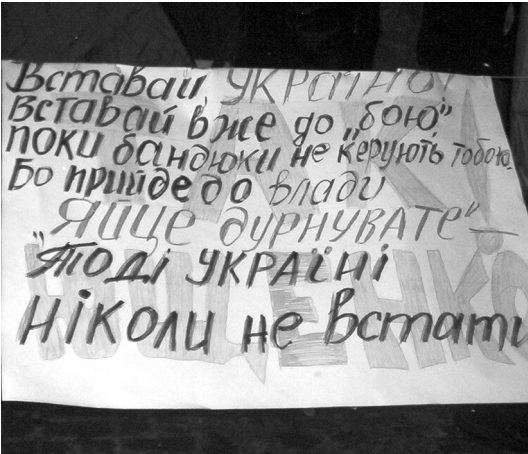 Вставай УКРаїНО!
Вставай вже до „бою”,
поки бандюки не керують тобою.
Бо прийде до влади
„Яйце дурнувате” —
Тоді УКРАЇНі
Ніколи не встати
ТАК!
ЮЩЕНКО